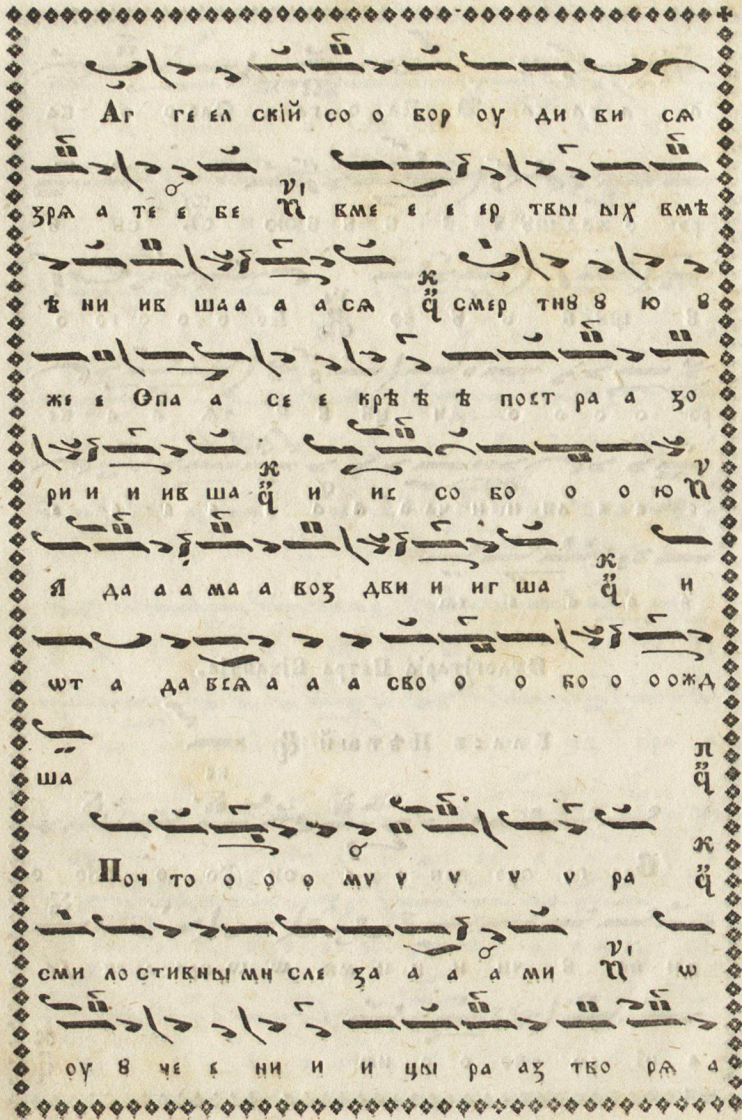 Аг ге ел скїй со о бор оу ди ви сѧ
ꙁрѧ а те е бе вме е е ер твы ых вмѣ
ѣ ни ив ша а а а сѧ смер тнꙋ ꙋ ю ꙋ
же е Ѳпа а се е крѣ ѣ ѣ пост ра а ꙁо
ри и и ив ша и ис со бо о о ю
Я да а а ма а воꙁ дви и иг ша и
ѡт а да всѧ а а а сво о о бо о оожд
ша
Поч то о о о мѵ ѵ ѵ ѵ ѵ ѵ ра
сми ло стивны мн сле ꙁа а а а ми ѡ
оу ꙋ че е ни и и цы ра аꙁ тво рѧ а